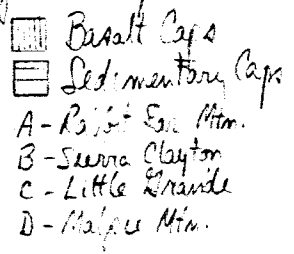 Basalt Caps
Sedimentary Caps
A - Rabbit Ear Mtn.
B - Sierra Clayton
C - Little Grande
D - Malpie Mtn.